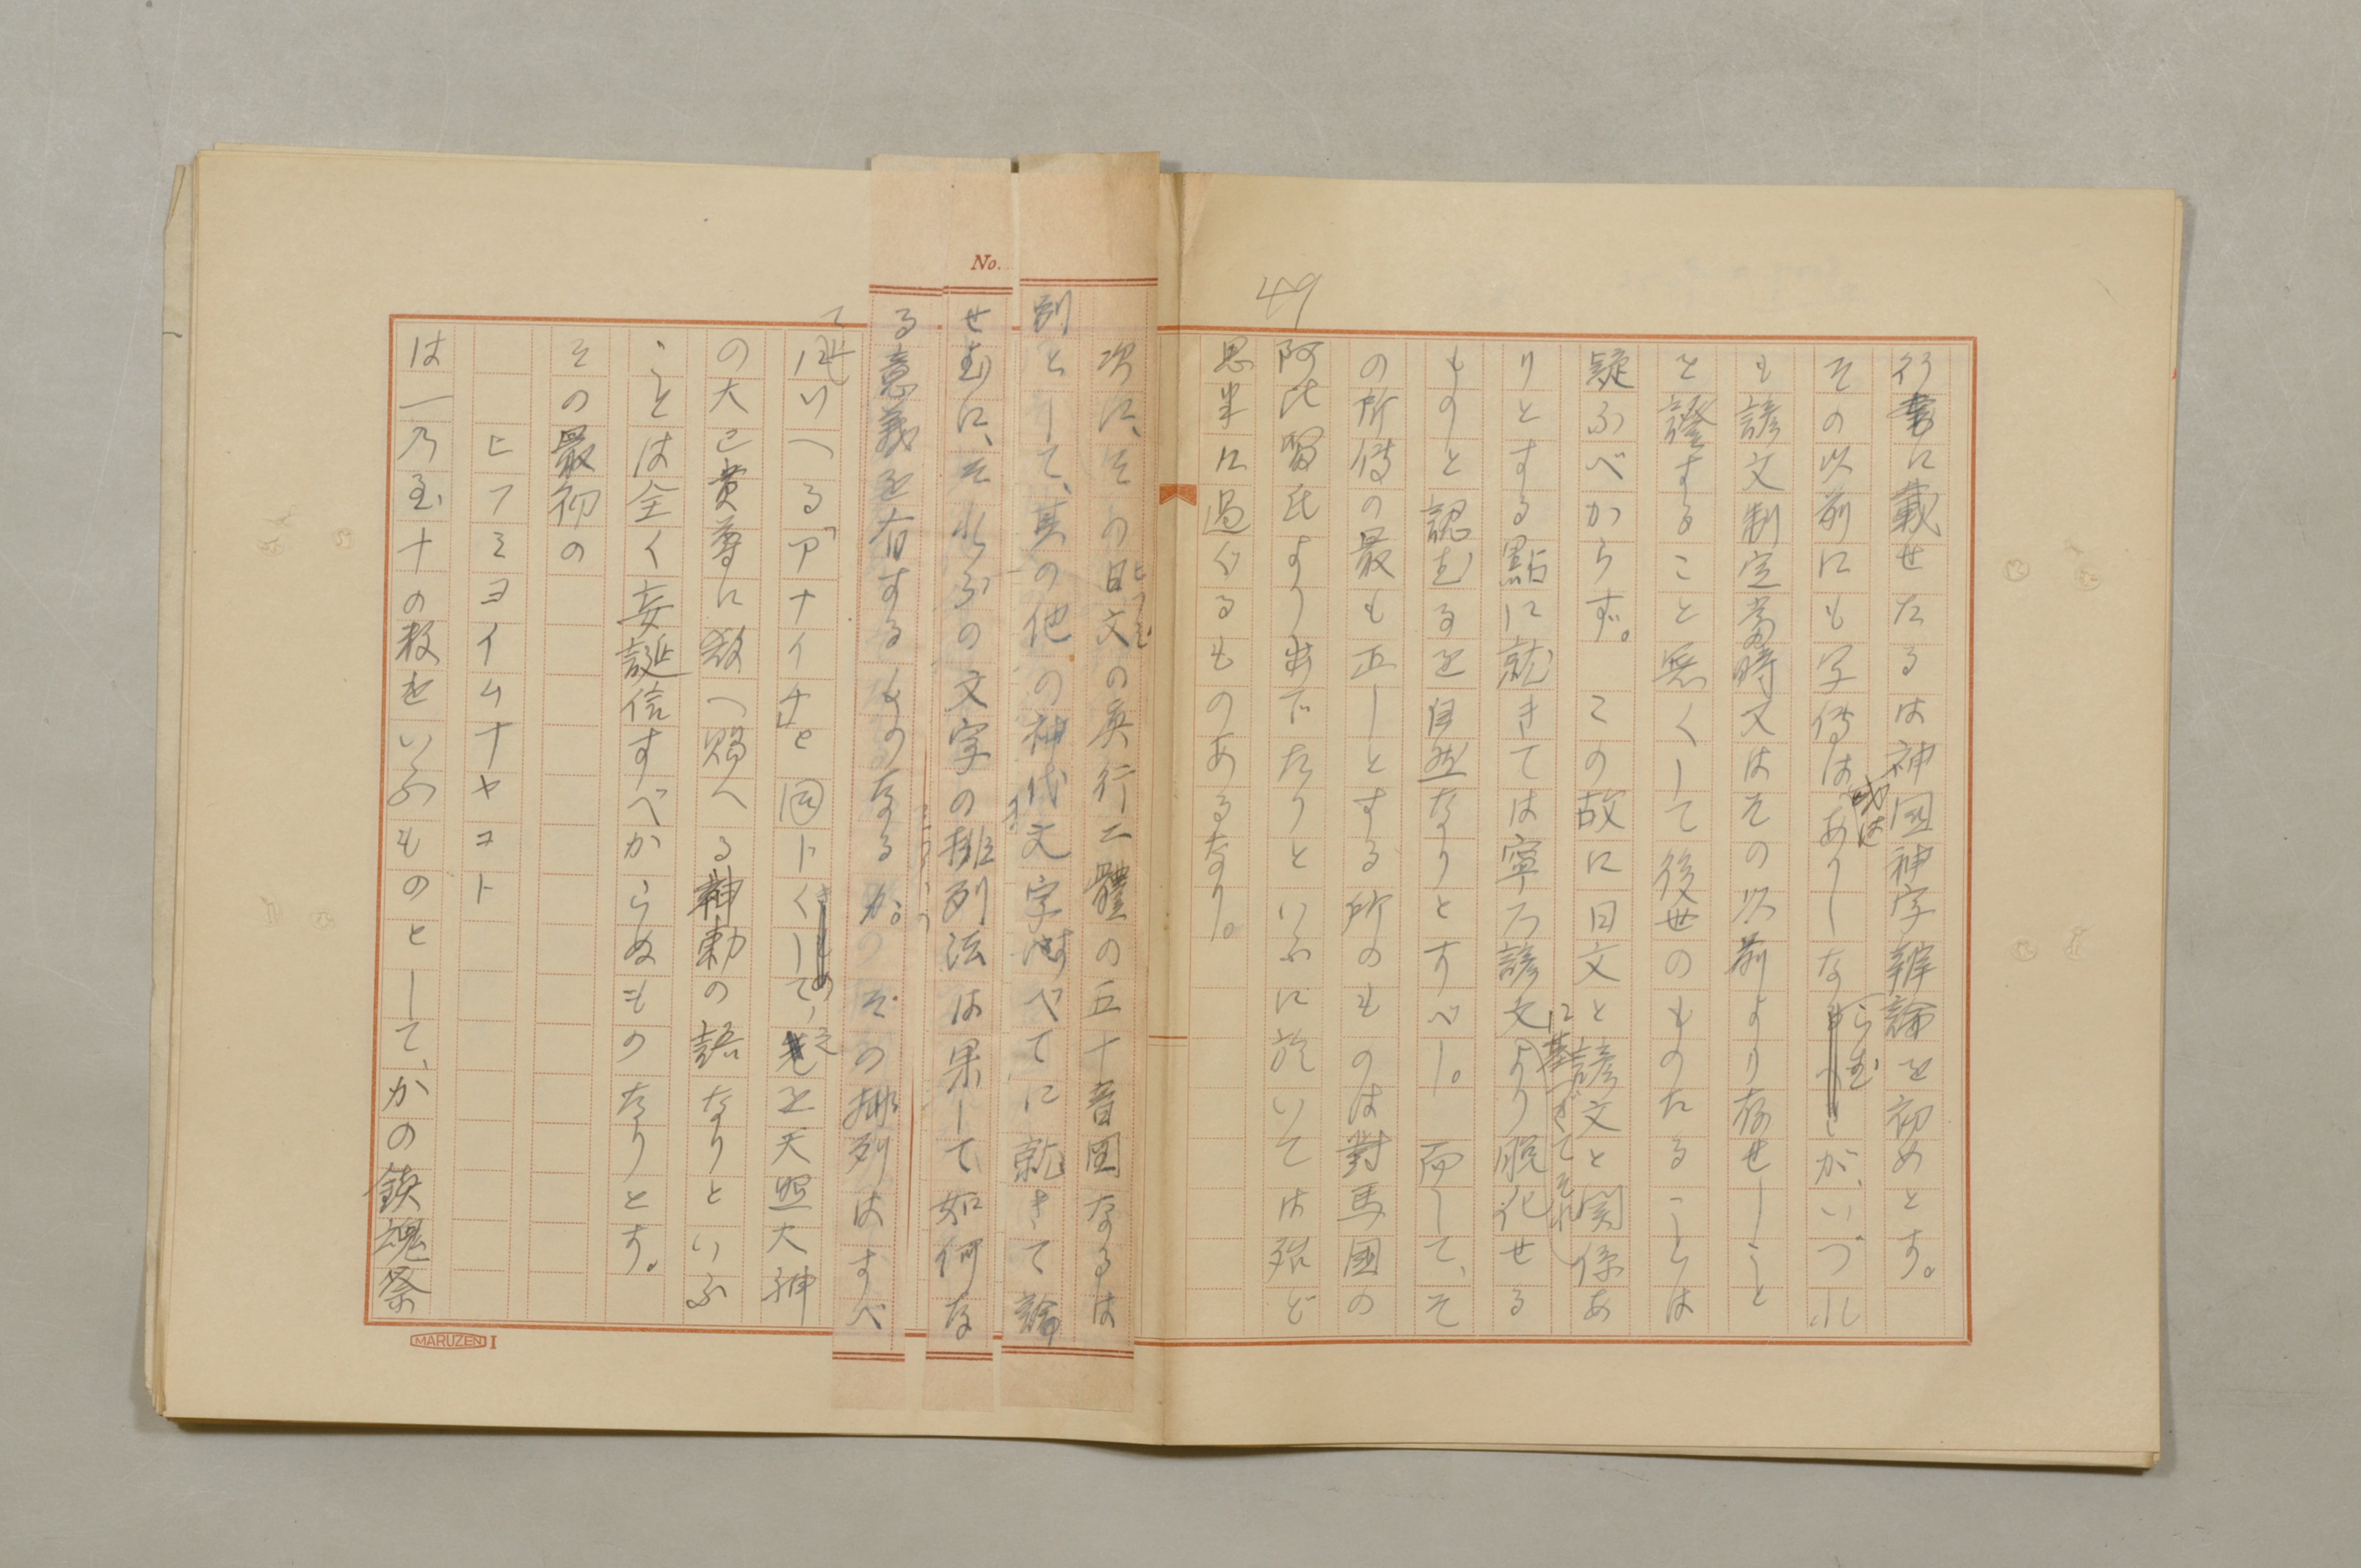 49
行書に載せたるは神国神字辨論を初めとす。
その以前にも字傳は或はありしならむが、いづれ
も諺文制定當時又はその以前より存せしこと
を證すること無くして後世のものたることは
疑ふべからず。この故に日文と諺文と関係あ
りとする點に就きては寧ろ諺文に基づきてそれより脱化せる
ものと認むるを自然なりとすべし。而して、そ
の所傳の最も正しとする所のものは對馬國の
阿比留氏より出でたりといふに於いては殆ど
思半に過ぐるものあるなり。
No.
次に、その日文の真行二體の五十音圖なるは
別として、其の他の神代文字はすべてに就きて論
せむに、それらの文字の排列法は果して如何な
る意義を有するものなるか。その排列はすべ
て
のいへるアナイチと同トくして、之を天照大神
の大己貴尊に教へ賜へる神勅の語なりといふ
ことは全く妄誕信すべからぬものなりとす。
その最初の
ヒフミヨイムナヤコト
は一乃至十の数をいふものとして、かの鎮魂祭
MARUZEN I